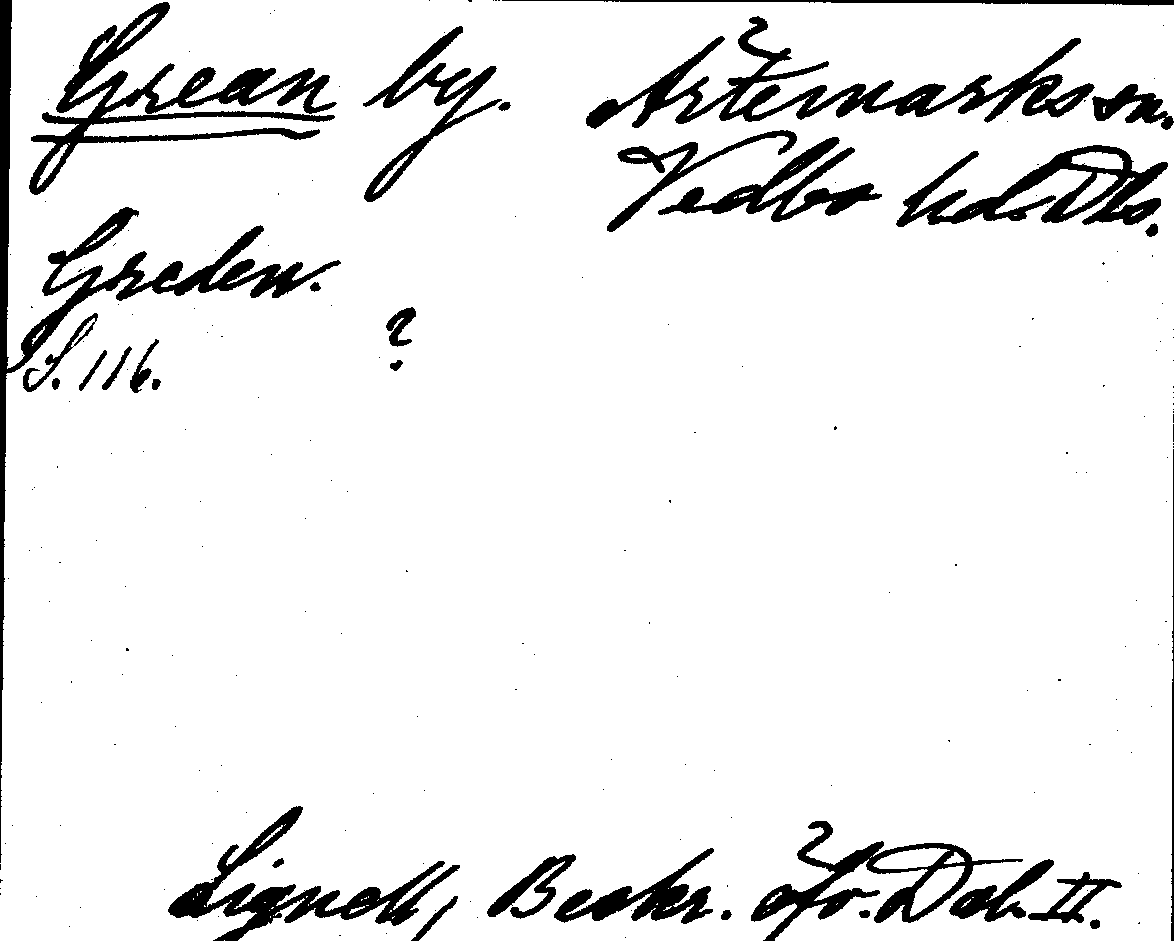 Grean by. Ärtemarks sn.
Vedbo hd. Dls.
Greden.
S. 116. ?
Lignell, Beskr. öfv. Dal. II.